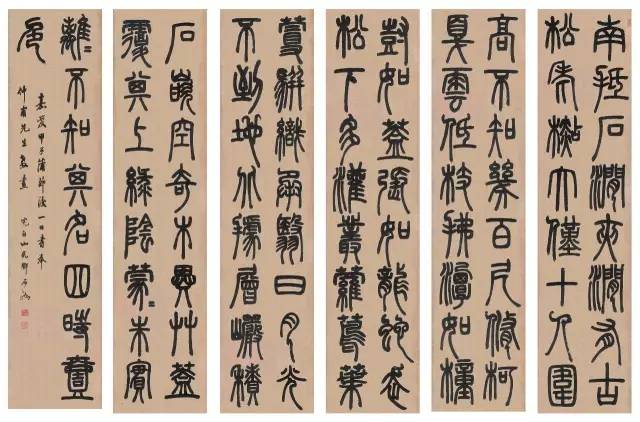 南抵石澗夾澗有古
松老檆大僅十人圍
高不知幾百尺脩柯
戛雲低枝拂潭如幢
豎如蓋張如龍蛇走
松下多灌叢蘿蔦葉
蔓駢織承翳日月光
不到地北據層巖積
石嵌空奇木異艸蓋
覆其上綠陰蒙〻朱實
離〻不知其名四時壹
色
嘉慶甲子蒲節後一日書奉
仲甫先生 完白山民鄧石如